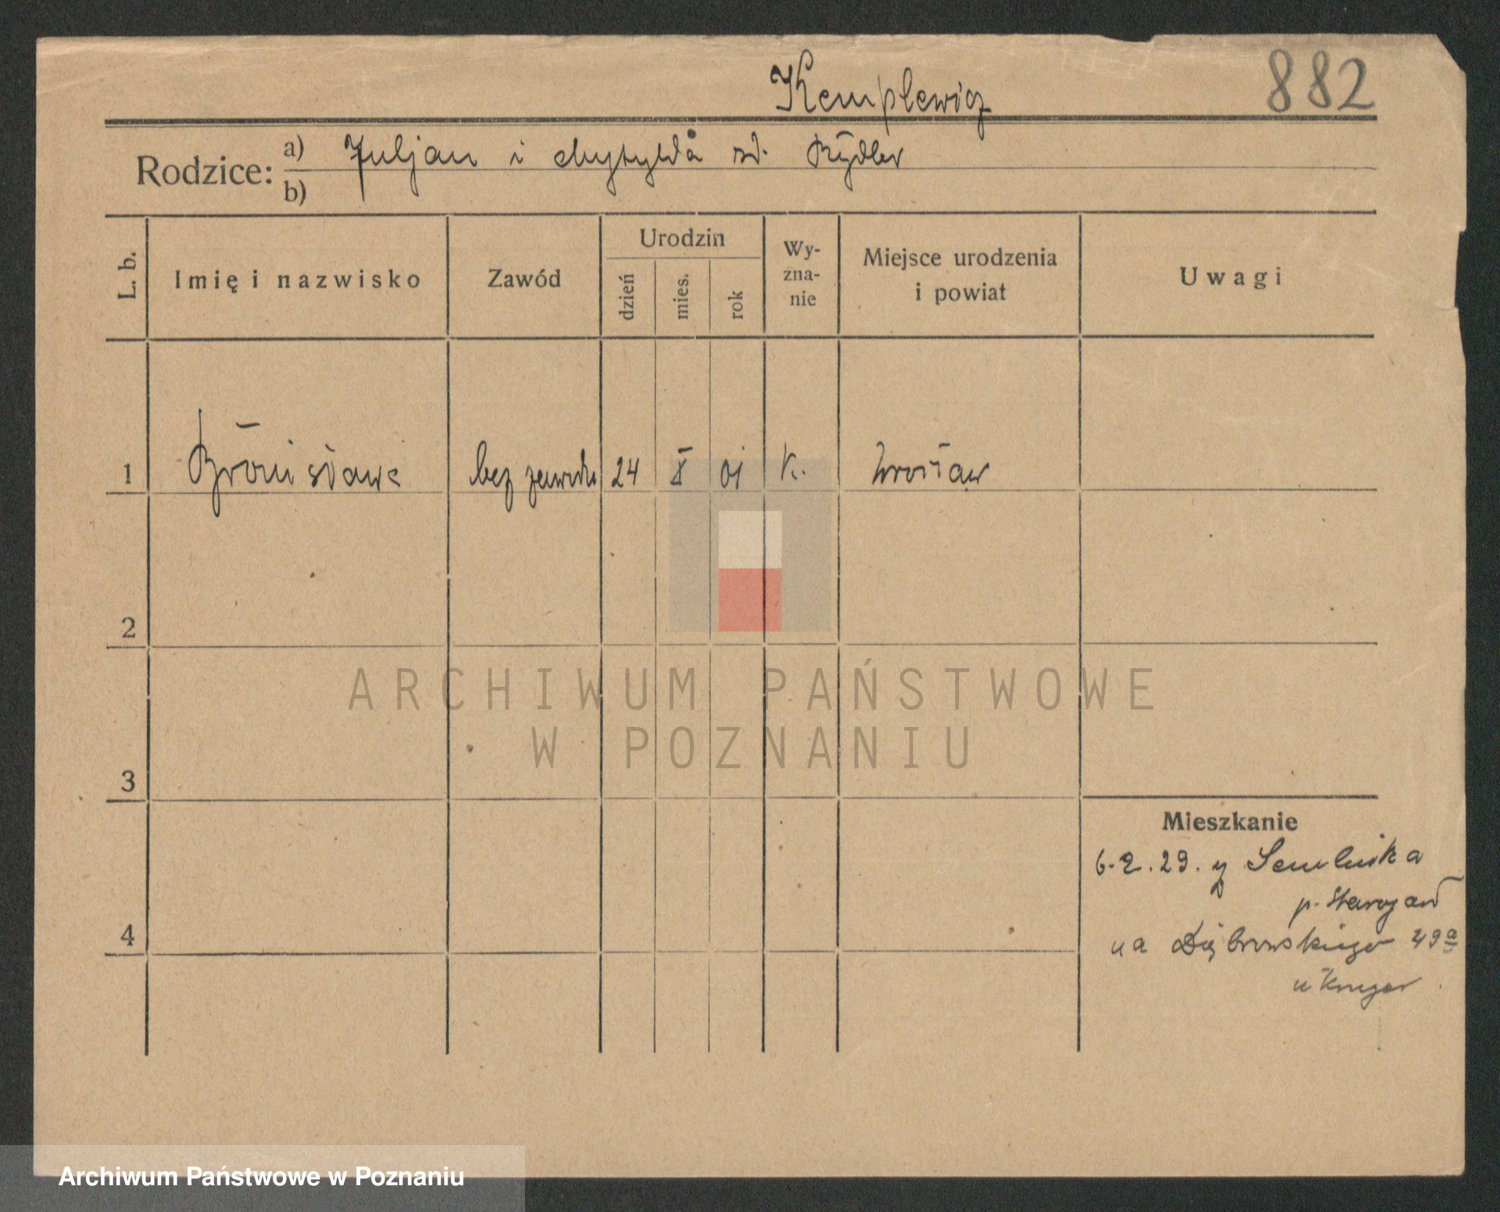 Kemplewicz
882
Rodzice: a) Juljan i Matylda zd. Rydler
b)
L. b.
Imię i nazwisko
Zawód
Urodzin
dzień
mies.
rok
Wy-
zna-
nie
Miejsce urodzenia
i powiat
Uwagi
1 Bronisława bez zawodu 24 X 01 k. Wrocław
2
ARCHIWUM PAŃSTWOWE
W POZNANIU
3
Mieszkanie
6.2.29. z
p. Starogard
4
na Dąbrowskiego 49a
u Kruger
Archiwum Państwowe w Poznaniu